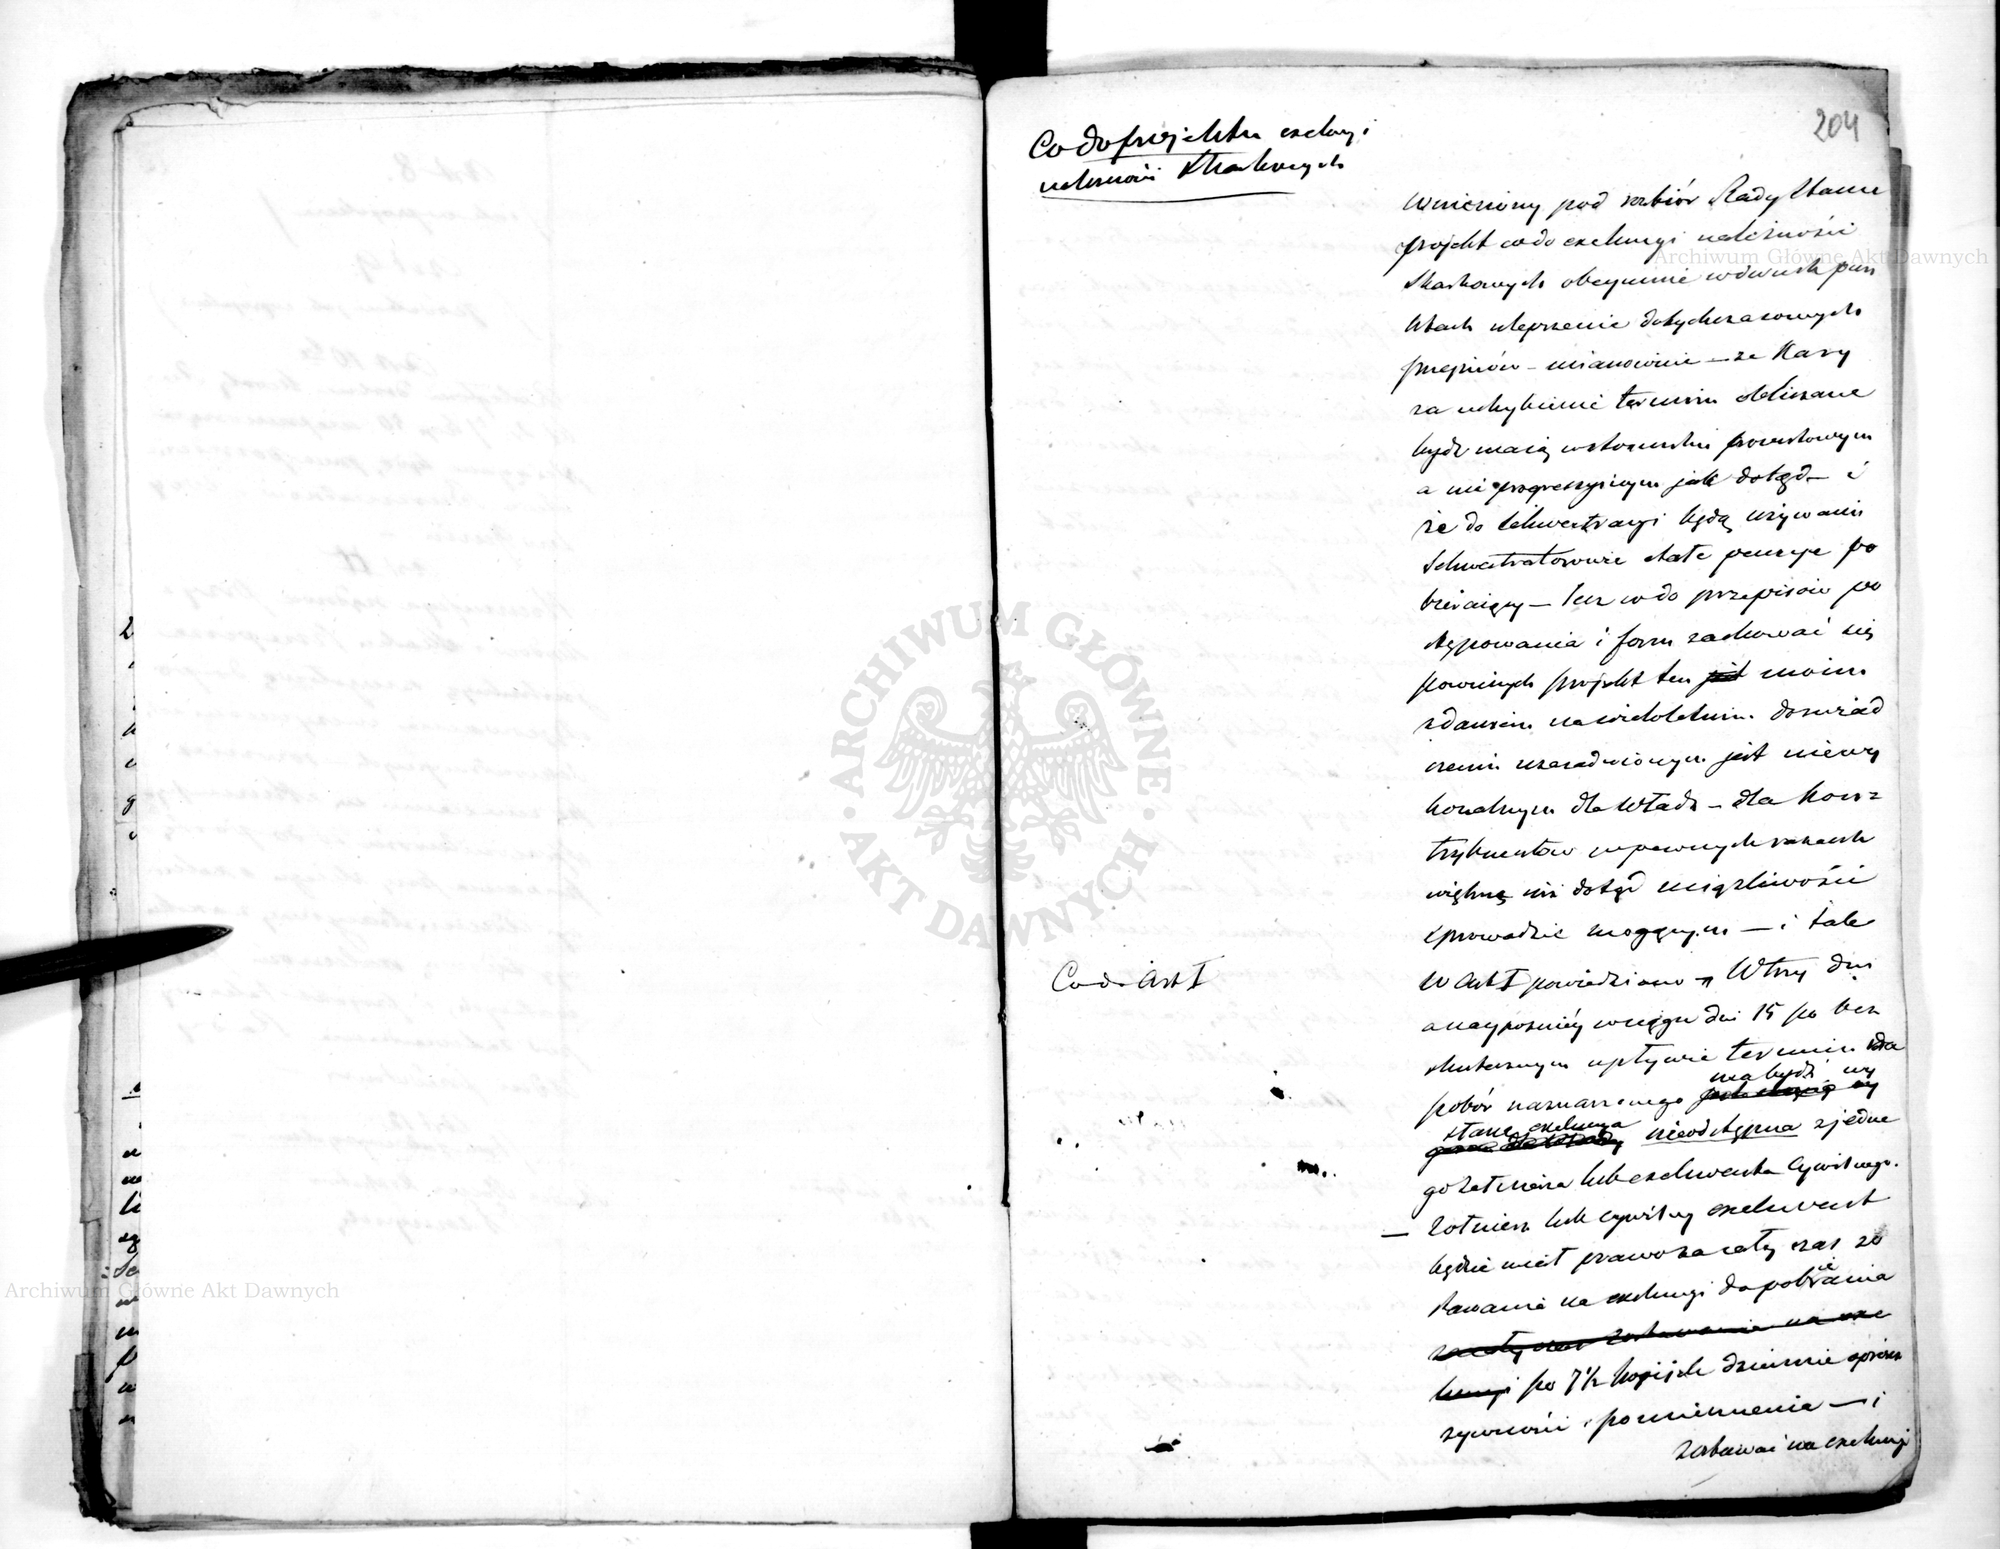 204
Co do projektu exekucyi
należności skarbowych
Wniesiony pod rozbiór Rady Stanu
projekt co do exekucyi należności
skarbowych obeymuie w dwuch pun
ktach ulepszenie dotychczasowych
przepisów – mianowicie – że Kary
za uchybienie terminu obliczane
bydź maią w stosunku procentowym
a nie progressyinym jak dotąd – i
że do sekwestracyi będą używani
Sekwestratorowie stałe pensye po
bieraiący – lecz co do przepisów po
stępowania i form zachować się
powinnych projekt ten jest moim
zdaniem na wieloletnim doswiad
czeniu uzasadnionym jest niewy
konalnym dla Władz – dla Kon
trybuentów w pewnych razach
większą niż dotąd uciążliwość
sprowadzić mogącym – i tak
Co do Art I
W Art I powiedziano – W trzy dni
a naypozniéy w ciągu dni 15 po bez
skutecznym upływie terminu na
pobór naznaczonego ma bydź wy
słana exekucya nieodstępna z jedne
go żołnierza lub exekwenta Cywilnego.
– Żołnierz lub cywilny exekwent
będzie miał prawo za cały czas zo
stawania na exekucyi do pobierania
za cały czas zostawania na exe
kucyi po 7½ kopiejek dziennie oprócz
żywności i pomieszczenia – i
zostawać na exekucyi
Archiwum Główne Akt Dawnych
Archiwum Główne Akt Dawnych
ARCHIWUM GŁÓWNE
AKT DAWNYCH